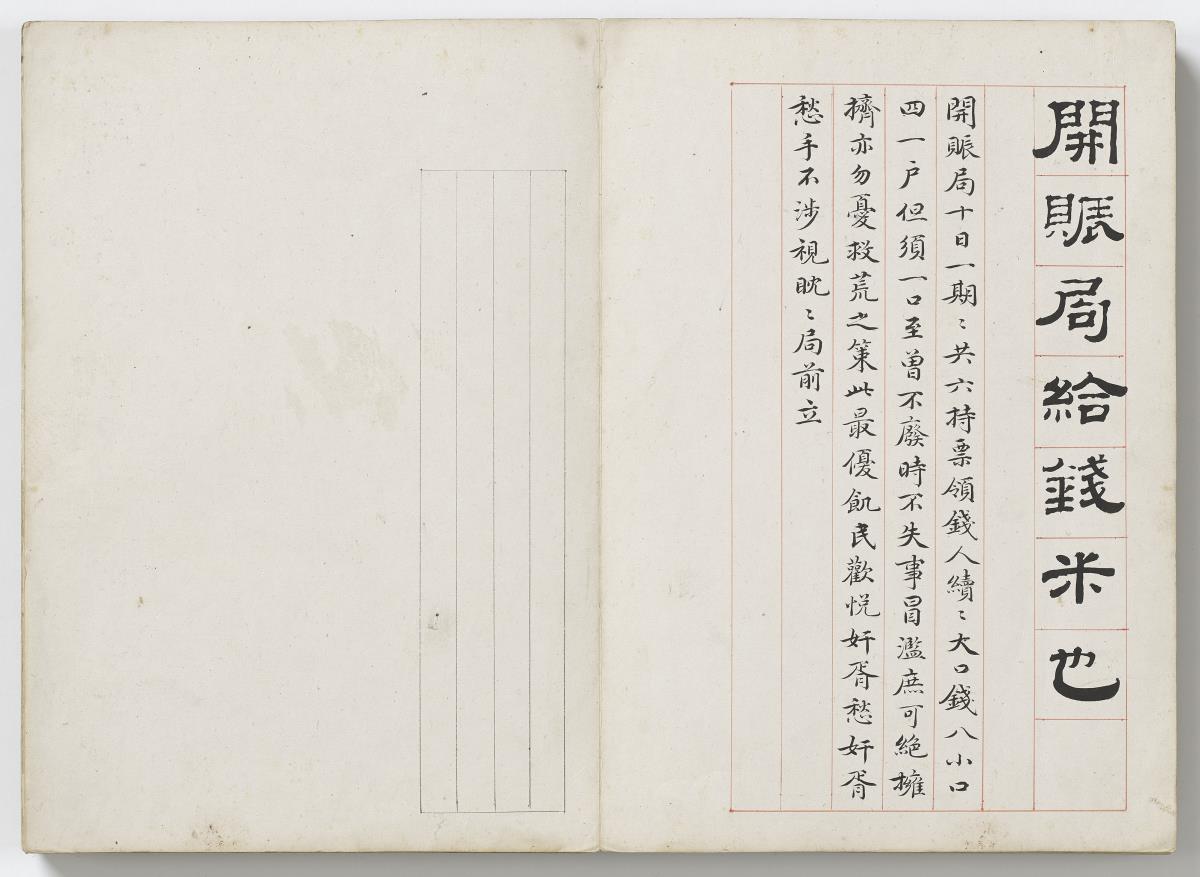 開賑局給錢米也
開賑局十日一期〻共六持票領錢人續〻大口錢八小口
四一戶但須一口至曾不廢時不失事冒濫庶可絕擁
擠亦勿憂救荒之策此最優飢民歡悅奸胥愁奸胥
愁手不涉視眈〻局前立